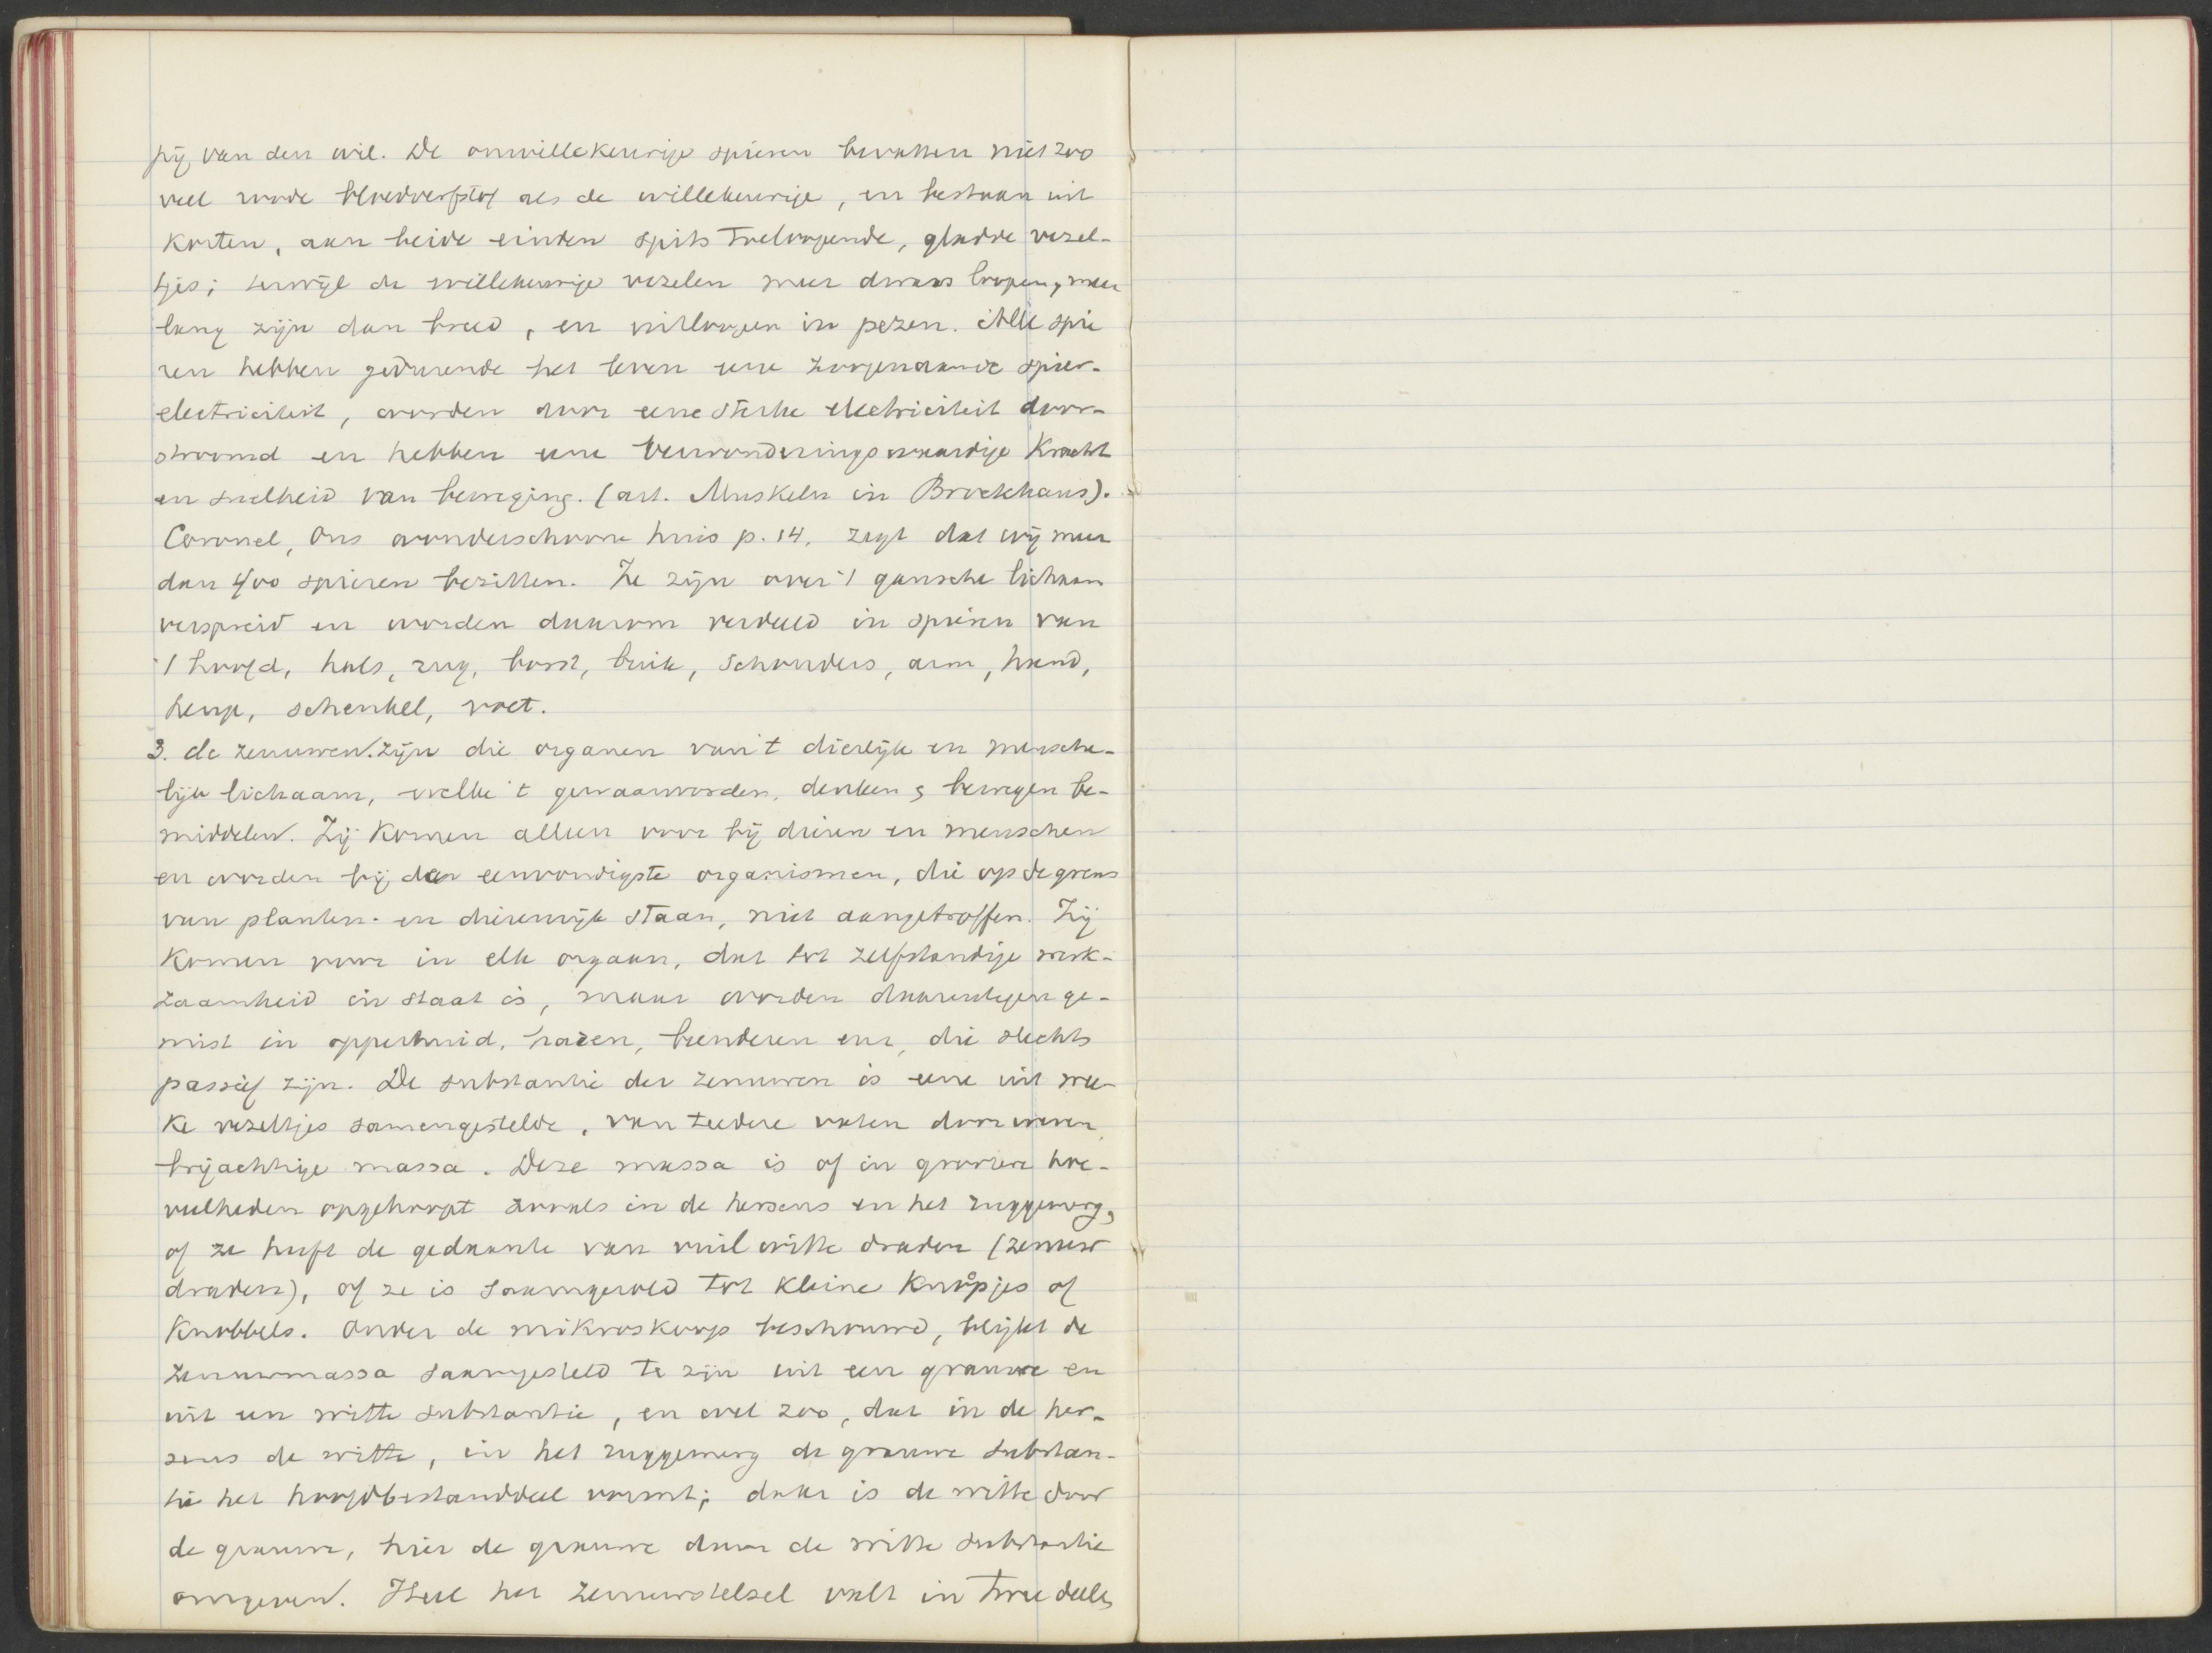 pij van den wil. De onwillekeurige spieren bevatten niet zoo
veel roode bloedverfstof als de willekeurige, en bestaan uit
korten, aan beide einden spits toeloopende, gladde vezel-
tjes; terwijl de willekeurige vezelen meer dwars loopen, meer
lang zijn dan breed, en uitloopen in pezen. Alle spie
ren hebben gedurende het leven eene zoogenaamde spier-
electriciteit, worden door eene sterke electriciteit door-
stroomd en hebben eene bewonderingswaardige kracht
en snelheid van beweging. (art. Muskeln in Brockhaus).
Coronel, Ons wonderschoone huis p. 14, zegt dat wij meer
dan 400 spieren bezitten. Ze zijn over 't gansche lichaam
verspreid en worden daarom verdeeld in spieren van
't hoofd, hals, rug, borst, buik, schouders, arm, hand,
heup, schenkel, voet.
3. de zenuwen. zijn die organen van 't dierlijk en mensche-
lijk lichaam, welke 't gewaarworden, denken & bewegen be-
middelen. Zij komen alleen voor bij dieren en menschen
en worden bij de eenvoudigste organismen, die op de grens
van planten- en dierenrijk staan, niet aangetroffen. Zij
komen voor in elk orgaan, dat tot zelfstandige werk-
zaamheid in staat is, maar worden daarentegen ge-
mist in opperhuid, haren, beenderen enz, die slechts
passief zijn. De substantie der zenuwen is eene uit wee-
ke vezeltjes samengestelde, van teedere vaten doorweven,
brijachtige massa. Deze massa is of in grootere hoe-
veelheden opgehoopt zooals in de hersens en het ruggemerg,
of ze heeft de gedaante van vuil witte draden (zenuw
draden), of ze is saamgerold tot kleine knoopjes of
knobbels. Onder de mikroskoop beschouwd, blijkt de
zenuwmassa saamgesteld te zijn uit een grauwe en
uit een witte substantie, en wel zoo, dat in de her-
sens de witte, in het ruggemerg de grauwe substan-
tie het hoofdbestanddeel vormt; daar is de witte door
de grauwe, hier de grauwe door de witte substantie
omgeven. Heel het zenuwstelsel valt in twee deelen